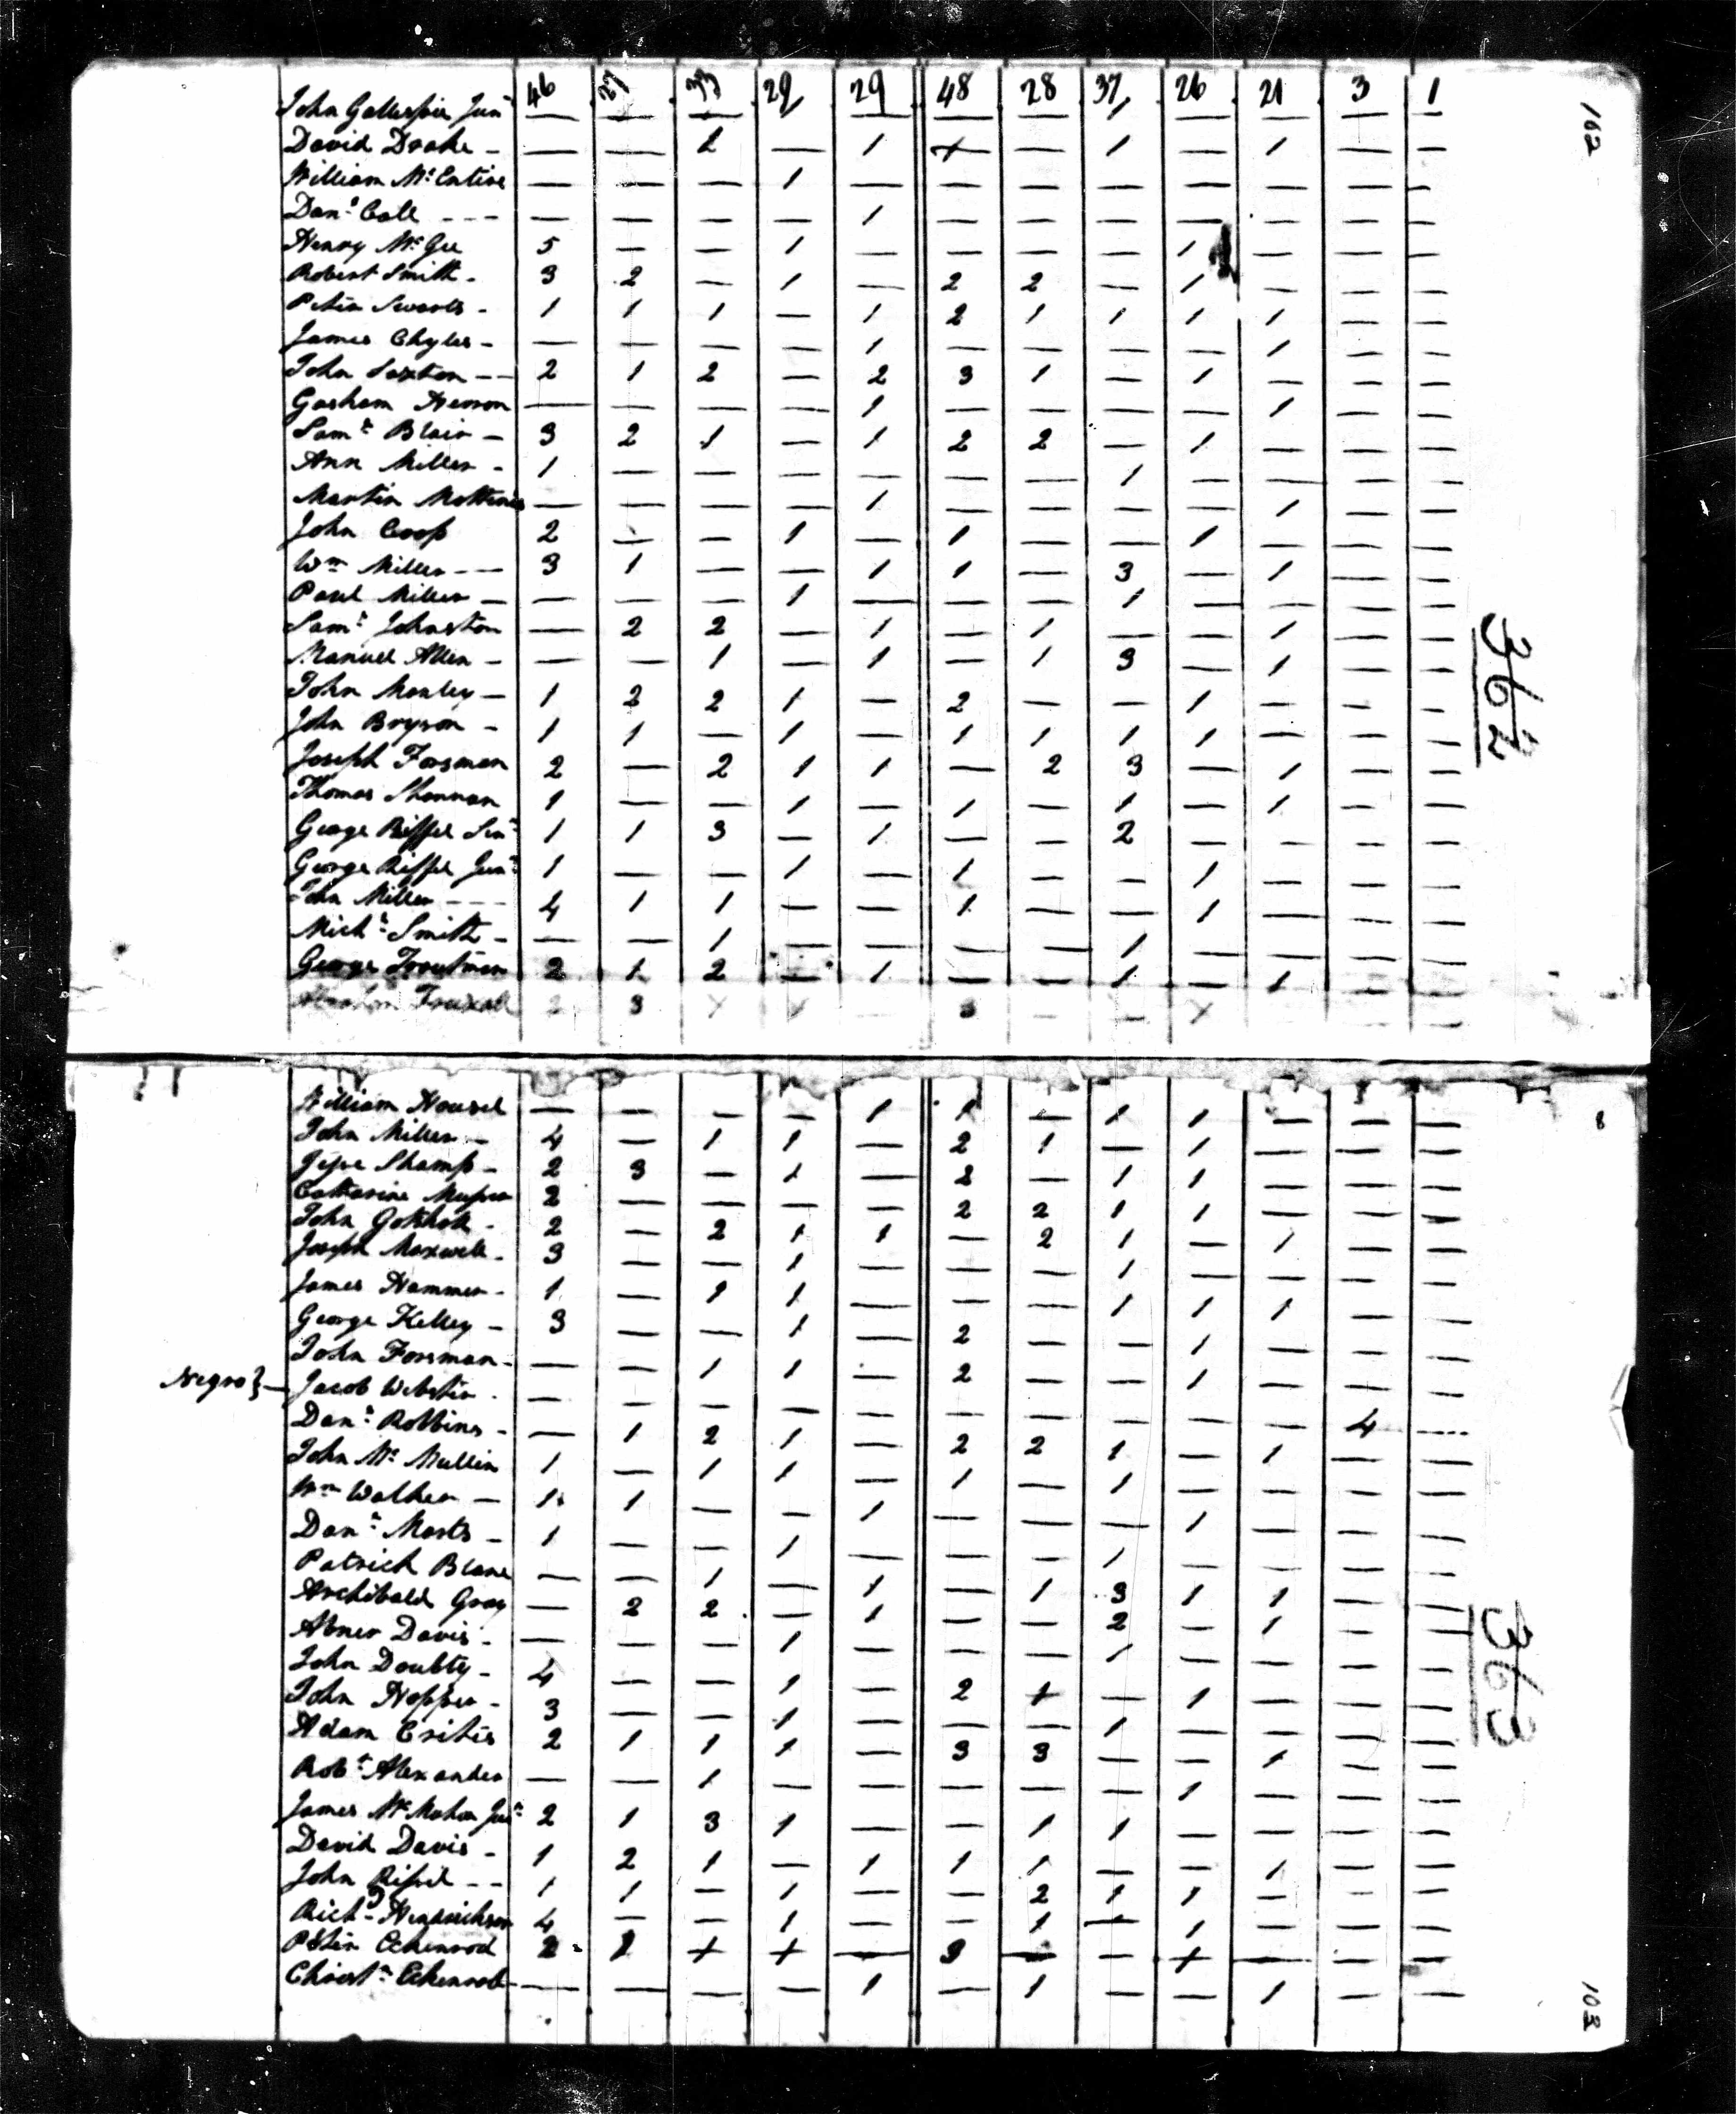 46 27 33 29 29 48 28 37 26 21 3 1
John Gallespie Junr — — — — — — — 1 — — — —
162
David Drake — — — 1 — 1 1 — 1 — 1 — —
William McEntire — — — 1 — — — — — — — —
Danl Cole — — — — — 1 — — — — — — —
Henry McGee 5 — — 1 — — — — 1 — — —
Robert Smith 3 2 — 1 — 2 2 — 1 — — —
Peter Swarts 1 1 1 — 1 2 1 1 1 1 — —
James Chyles — — — — 1 — — — — 1 — —
John Sexton 2 1 2 — 2 3 1 — 1 — — —
Gasham Henson — — — — 1 — — — — 1 — —
Saml Blair 3 2 1 — 1 2 2 — 1 — — —
Ann Miller 1 — — — — — — 1 — — — —
Martin — — — — 1 — — — — 1 — —
John Coop 2 — — 1 — 1 — — 1 — — —
Wm Miller 3 1 — — 1 1 — 3 — 1 — —
Paul Miller — — — 1 — — — 1 — — — —
Saml Johnston — 2 2 — 1 — 1 — — 1 — —
Manuel Allen — — 1 — 1 — 1 3 — 1 — —
362
John Manley 1 2 2 1 — 2 — — 1 — — —
John Bryson 1 1 — 1 — 1 1 1 1 — — —
Joseph Forsman 2 — 2 1 1 — 2 3 — 1 — —
Thomas Shannan 1 — — 1 — 1 — 1 — 1 — —
George Riffel Senr 1 1 3 — 1 — — 2 — — — —
George Riffel Junr 1 — — 1 — 1 — — 1 — — —
John Miller 4 1 1 — — 1 — — 1 — — —
Michl Smith — — 1 — — — — 1 — — — —
George Troutman 2 1 2 — 1 — — 1 — 1 — —
Abraham Truxall 2 3 1 1 — 3 — — 1 — — —
William Housel — — — — 1 1 — 1 1 — — —
8
John Miller 4 — 1 1 — 2 1 — 1 — — —
Jesse Shamp 2 3 — 1 — 2 — 1 1 — — —
Catharine 2 — — — — 2 2 1 1 — — —
John 2 — 2 1 1 — 2 1 — 1 — —
Joseph Maxwell 3 — — 1 — — — 1 — — — —
James Hammer 1 — 1 1 — — — 1 1 1 — —
George Kelley 3 — — 1 — 2 — — 1 — — —
John Forsman — — 1 1 — 2 — — 1 — — —
Negro } — Jacob Webster — — — — — — — — — — 4 —
Danl Robbins — 1 2 1 — 2 2 1 — 1 — —
John McMullin 1 — 1 1 — 1 — 1 — — — —
Wm Walker 1 1 — — 1 — — — 1 — — —
Danl Marts 1 — — 1 — — — 1 — — — —
Patrick Blane — — 1 — 1 — 1 3 1 1 — —
Archibald Gray — 2 2 — 1 — — 2 — 1 — —
Abner Davis — — — 1 — — — 1 — — — —
363
John Doubty 4 — — 1 — 2 1 — 1 — — —
John Hopper 3 — — 1 — — — 1 — — — —
Adam Crites 2 1 1 1 — 3 3 — — 1 — —
Robt Alexander — — 1 — — — — — 1 — — —
James McMahon Junr 2 1 3 1 — — 1 1 — — — —
David Davis 1 2 1 — 1 1 1 — — 1 — —
John Riffel 1 1 — 1 — — 2 1 1 — — —
Richd Hendrickson 4 — — 1 — — 1 — 1 — — —
Peter Eckenrod 2 1 1 1 — 3 — — 1 — — —
Christn Eckenrode — — — — 1 — 1 — — 1 — —
103